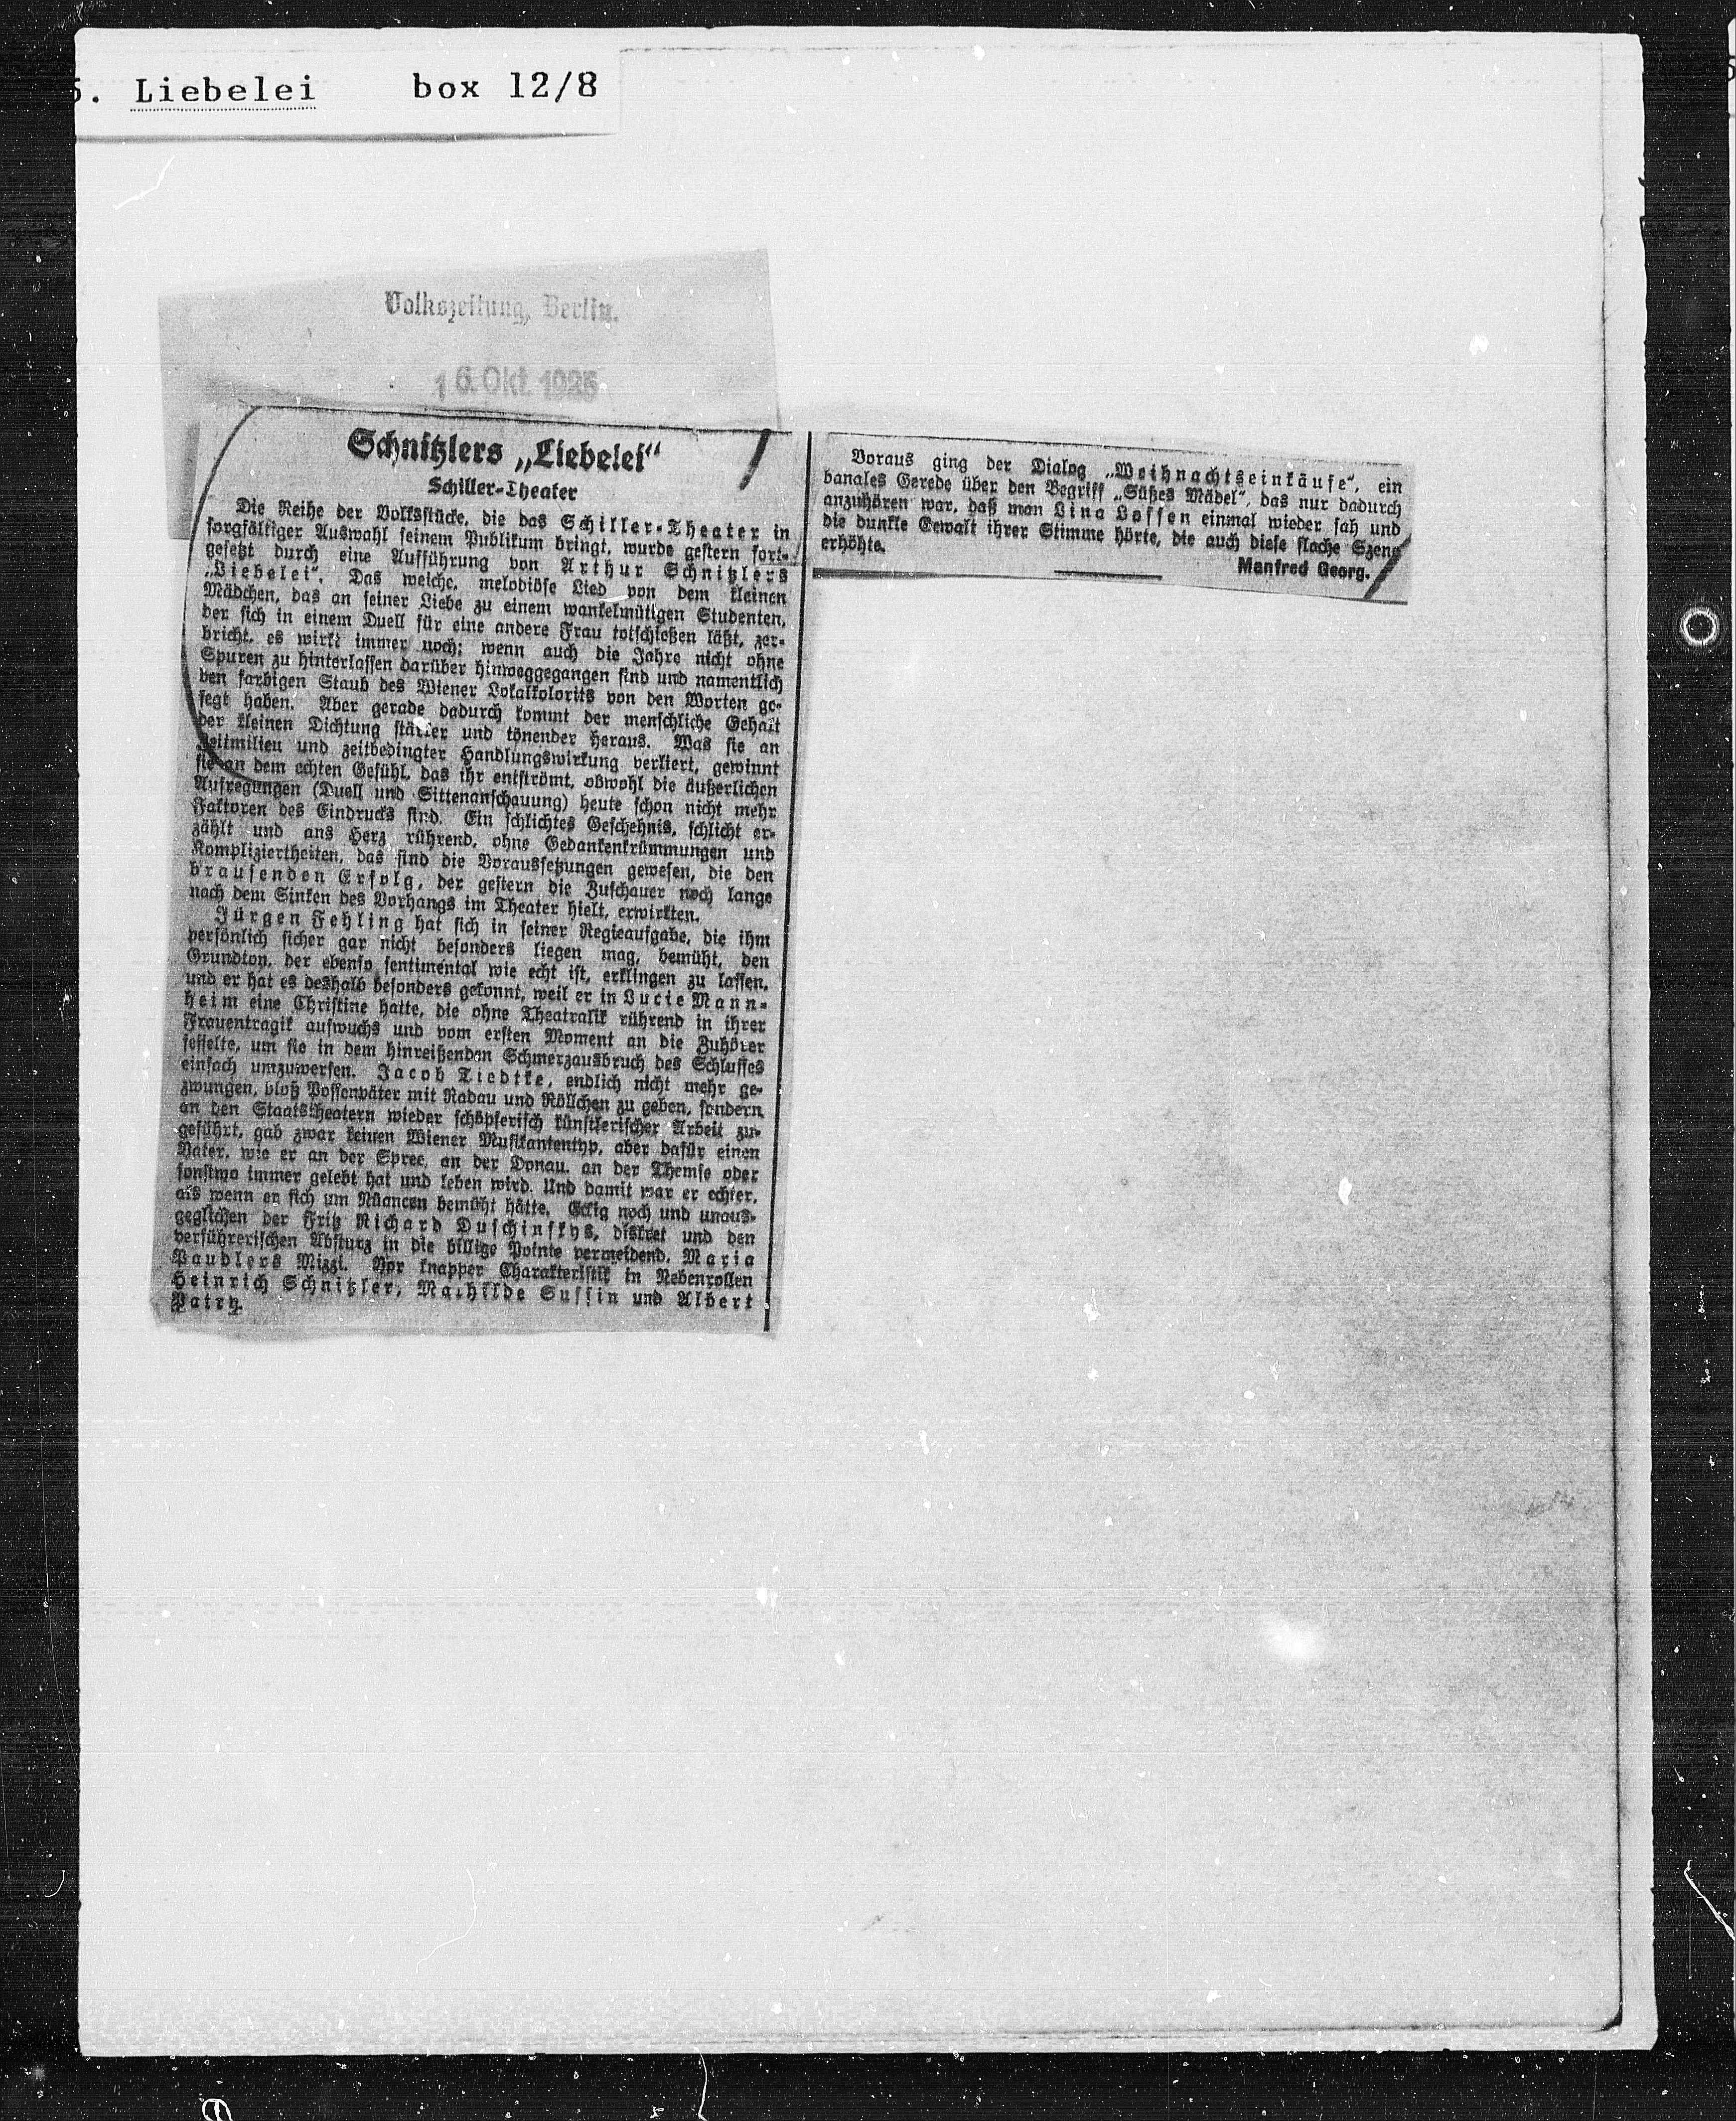 5. Liebelei box 12/8
Volkszeitung, Berlin.
16. Okt. 1925
Schnitzlers „Liebelei“
Schiller-Theater
Die Reihe der Volksstücke, die das Schiller-Theater in
sorgfältiger Auswahl seinem Publikum bringt, wurde gestern fort-
gesetzt durch eine Aufführung von Arthur Schnitzlers
„Liebelei“. Das weiche, melodiöse Lied von dem kleinen
Mädchen, das an seiner Liebe zu einem wankelmütigen Studenten,
der sich in einem Duell für eine andere Frau totschießen läßt, zer-
bricht, es wirkt immer noch; wenn auch die Jahre nicht ohne
Spuren zu hinterlassen darüber hinweggegangen sind und namentlich
den farbigen Staub des Wiener Lokalkolorits von den Worten ge-
fegt haben. Aber gerade dadurch kommt der menschliche Gehalt
der kleinen Dichtung stärker und tönender heraus. Was sie an
Zeitmilieu und zeitbedingter Handlungswirkung verliert, gewinnt
sie an dem echten Gefühl, das ihr entströmt, obwohl die äußerlichen
Aufregungen (Duell und Sittenanschauung) heute schon nicht mehr
Faktoren des Eindrucks sind. Ein schlichtes Geschehnis, schlicht er-
zählt und ans Herz rührend, ohne Gedankenkrümmungen und
Kompliziertheiten, das sind die Voraussetzungen gewesen, die den
brausenden Erfolg, der gestern die Zuschauer noch lange
nach dem Sinken des Vorhangs im Theater hielt, erwirkten.
Jürgen Fehling hat sich in seiner Regieaufgabe, die ihm
persönlich sicher gar nicht besonders liegen mag, bemüht, den
Grundton, der ebenso sentimental wie echt ist, erklingen zu lassen,
und er hat es deshalb besonders gekonnt, weil er in Lucie Mann-
heim eine Christine hatte, die ohne Theatralik rührend in ihrer
Frauentragik aufwuchs und vom ersten Moment an die Zuhörer
fesselte, um sie in dem hinreißenden Schmerzausbruch des Schlusses
einfach umzuwerfen. Jacob Tiedtke, endlich nicht mehr ge-
zwungen, bloß Possenväter mit Radau und Röllchen zu geben, sondern
an den Staatstheatern wieder schöpferisch künstlerischer Arbeit zu-
geführt, gab zwar keinen Wiener Musikantentyp, aber dafür einen
Vater, wie er an der Spree, an der Donau, an der Themse oder
sonstwo immer gelebt hat und leben wird. Und damit war er echter,
als wenn er sich um Nüancen bemüht hätte. Eckig noch und unaus-
geglichen der Fritz Richard Duschinskys, diskret und den
verführerischen Absturz in die billige Pointe vermeidend, Maria
Paudlers Mizzi. Vor knapper Charakteristik in Nebenrollen
Heinrich Schnitzler, Mathilde Sussin und Albert
Patry.
Voraus ging der Dialog „Weihnachtseinkäufe“, ein
banales Gerede über den Begriff „Süßes Mädel“, das nur dadurch
anzuhören war, daß man Lina Lossen einmal wieder sah und
die dunkle Gewalt ihrer Stimme hörte, die auch diese flache Szene
erhöhte.
Manfred Georg.